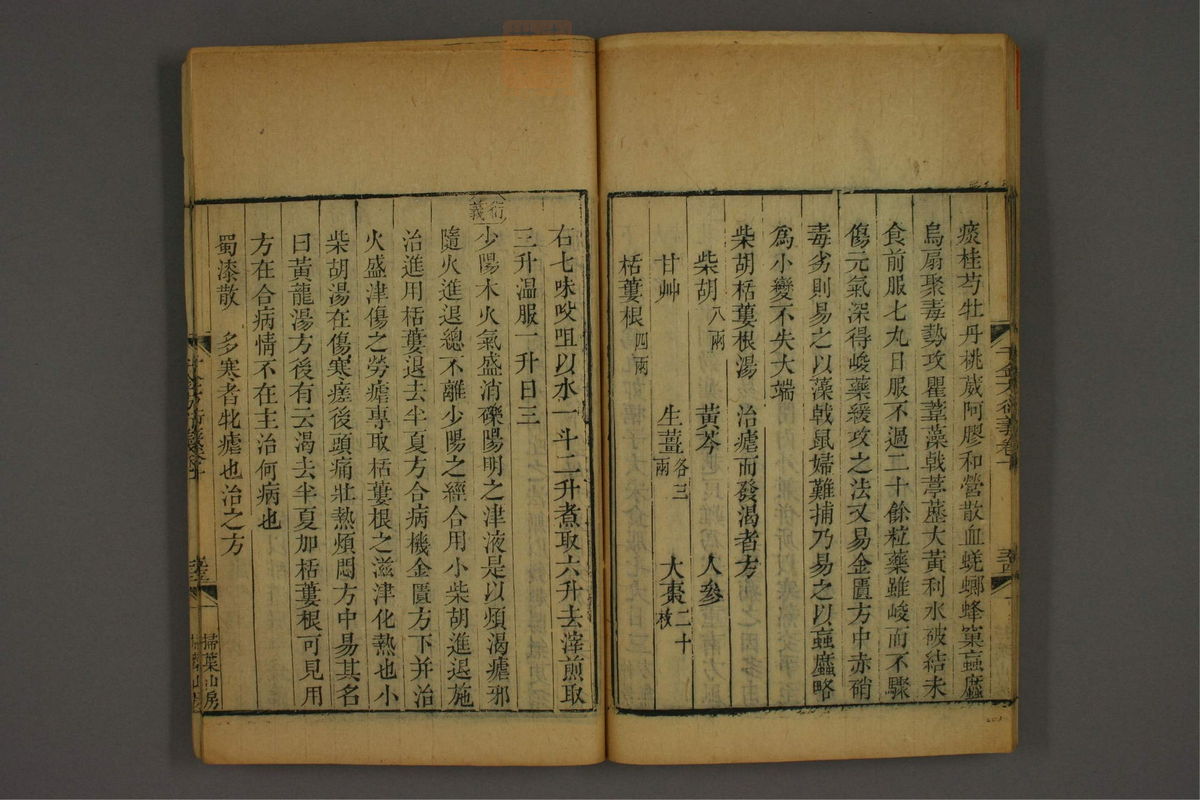 痰桂芍牡丹桃葳阿膠和營散血蜣螂蜂窠䗪䗪
烏扇聚毒勢攻瞿葦藻戟葶藶大黃利水破結未
食前服七丸日服不過二十餘粒藥雖峻而不驟
傷元氣深得峻藥緩攻之法又易金匱方中赤硝
毒劣則易之以藻戟鼠婦難捕乃易之以䗪䗪略
爲小變不失大端
柴胡栝蔞根湯　治瘧而發渴者方
柴胡八兩　黃芩　人參
甘艸　生薑各三兩　大棗二十枚
栝蔞根四兩
右七味㕮咀以水一斗二升煮取六升去滓煎取
三升温服一升日三
衍義
少陽木火氣盛消礫陽明之津液是以煩渴瘧邪
隨火進退總不離少陽之經合用小柴胡進退施
治進用栝蔞退去半夏方合病機金匱方下并治
火盛津傷之勞瘧專取栝蔞根之滋津化熱也小
柴胡湯在傷寒瘥後頭痛壯熱煩悶方中易其名
曰黃龍湯方後有云渴去半夏加栝蔞根可見用
方在合病情不在主治何病也
蜀漆散　多寒者牝瘧也治之方
掃葉山房